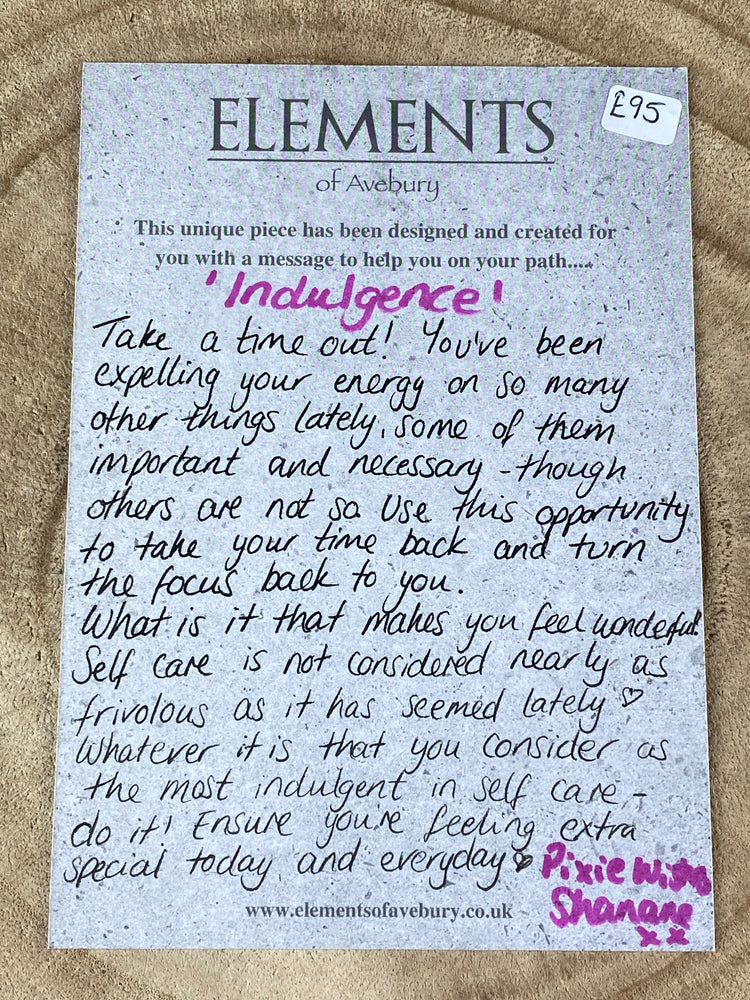 ELEMENTS
£95
of Avebury
This unique piece has been designed and created for
you with a message to help you on your path....
'Indulgence'
Take a time out! You've been
expelling your energy on so many
other things lately, some of them
important and necessary - though
others are not so. Use this opportunity
to take your time back and turn
the focus back to you.
What is it that makes you feel wonderful?
Self care is not considered nearly as
frivolous as it has seemed lately ♡
Whatever it is that you consider as
the most indulgent in self care -
do it! Ensure you're feeling extra
special today and everyday ♥
Pixie Wishes
Shanane
x x
www.elementsofavebury.co.uk